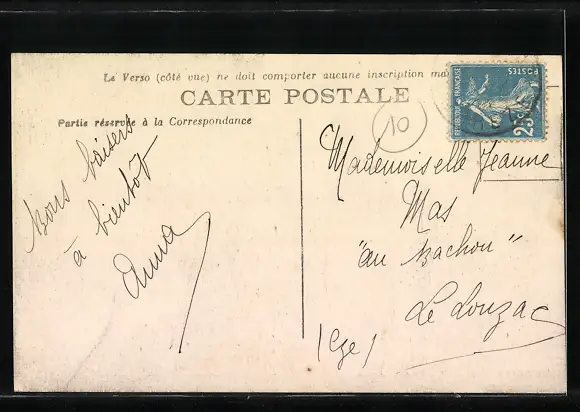 Le Verso (côté vue) ne doit comporter aucune inscription
CARTE POSTALE
Partie réservée à la Correspondance
Bons baisers
à bientôt
Anna
10
REPUBLIQUE FRANÇAISE
POSTES
25
Mademoiselle Jeanne
Mas
"au Bachou"
Le Louzac